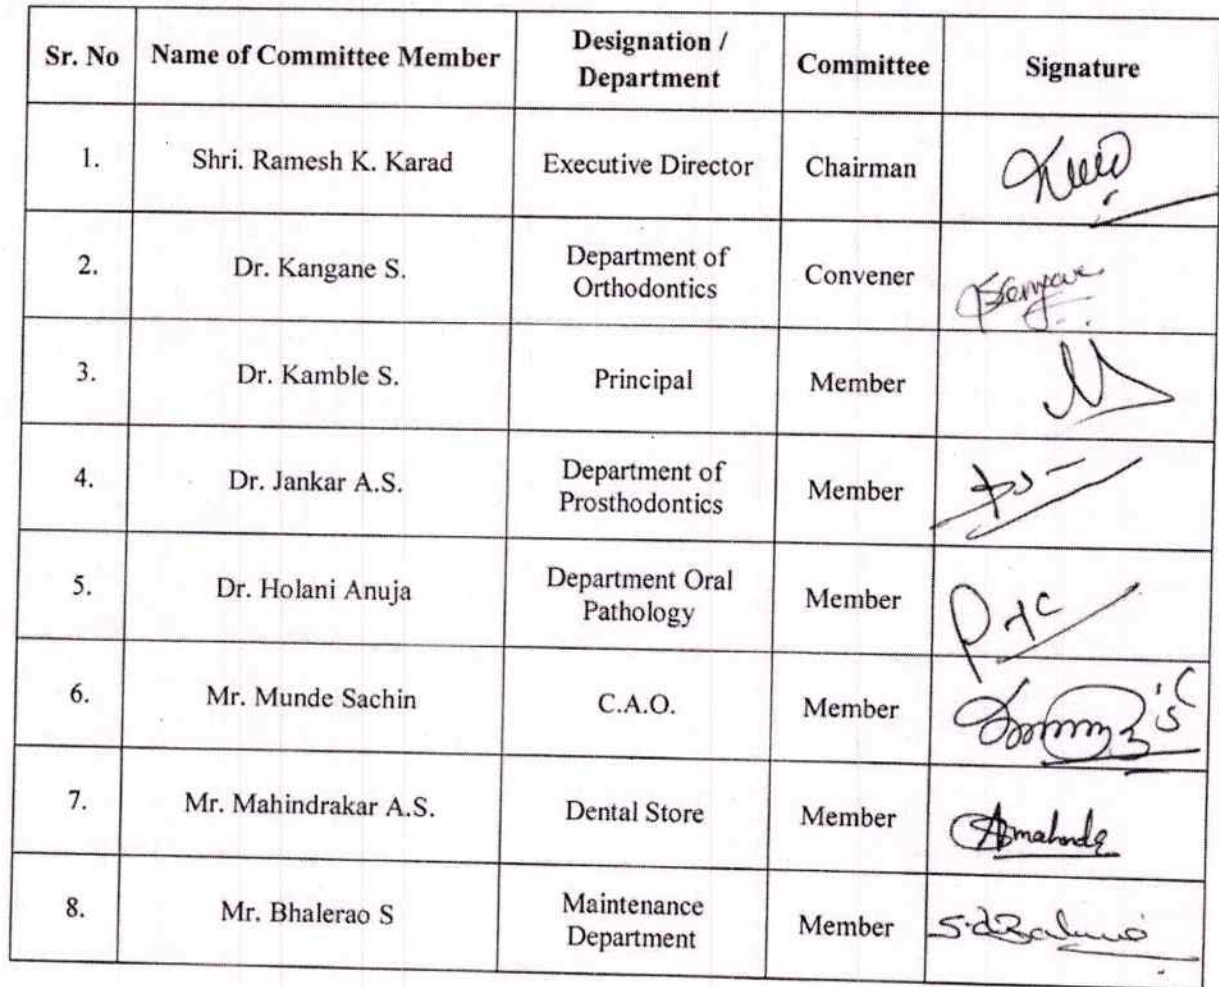 Sr. No Name of Committee Member Designation / Department Committee Signature
1. Shri. Ramesh K. Karad Executive Director Chairman
2. Dr. Kangane S. Department of Orthodontics Convener
3. Dr. Kamble S. Principal Member
4. Dr. Jankar A.S. Department of Prosthodontics Member
5. Dr. Holani Anuja Department Oral Pathology Member
6. Mr. Munde Sachin C.A.O. Member
7. Mr. Mahindrakar A.S. Dental Store Member
8. Mr. Bhalerao S Maintenance Department Member